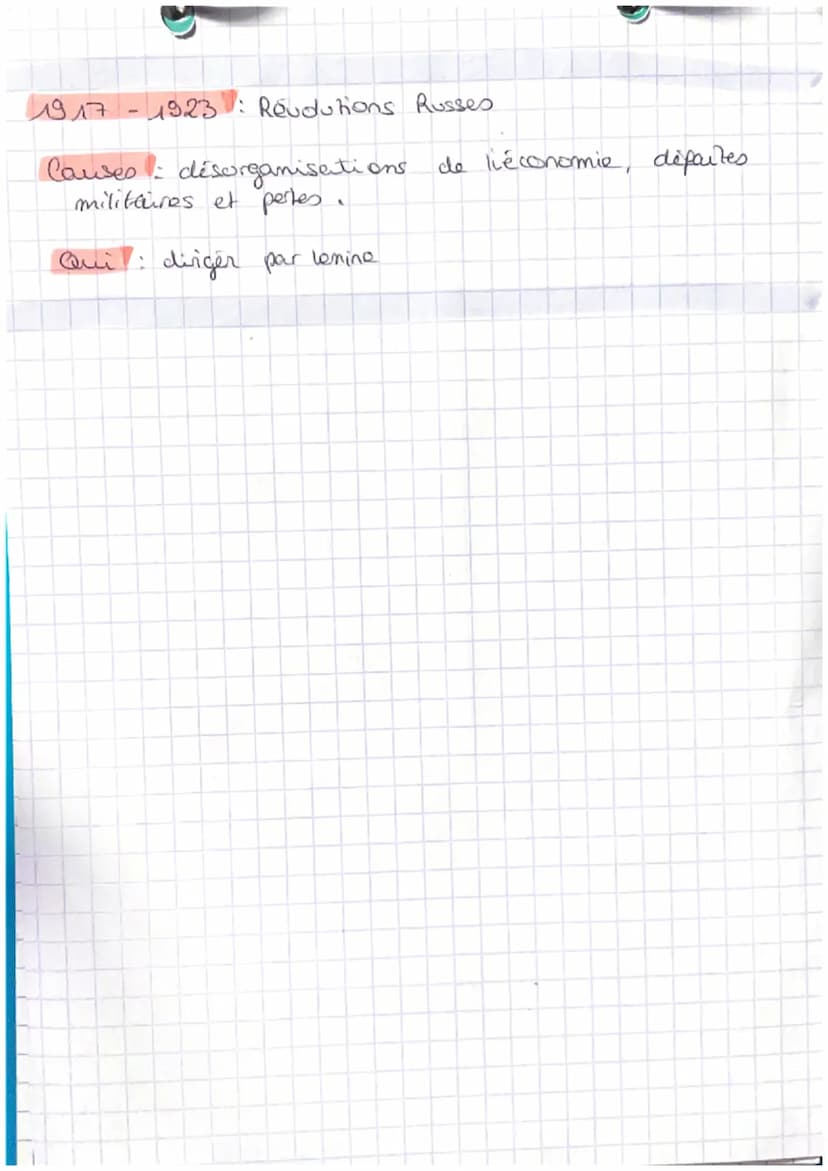 1917 - 1923 : Révolutions Russes
Causes : désorganisations de l'économie, défaites
militaires et pertes.
Qui : diriger par lenine